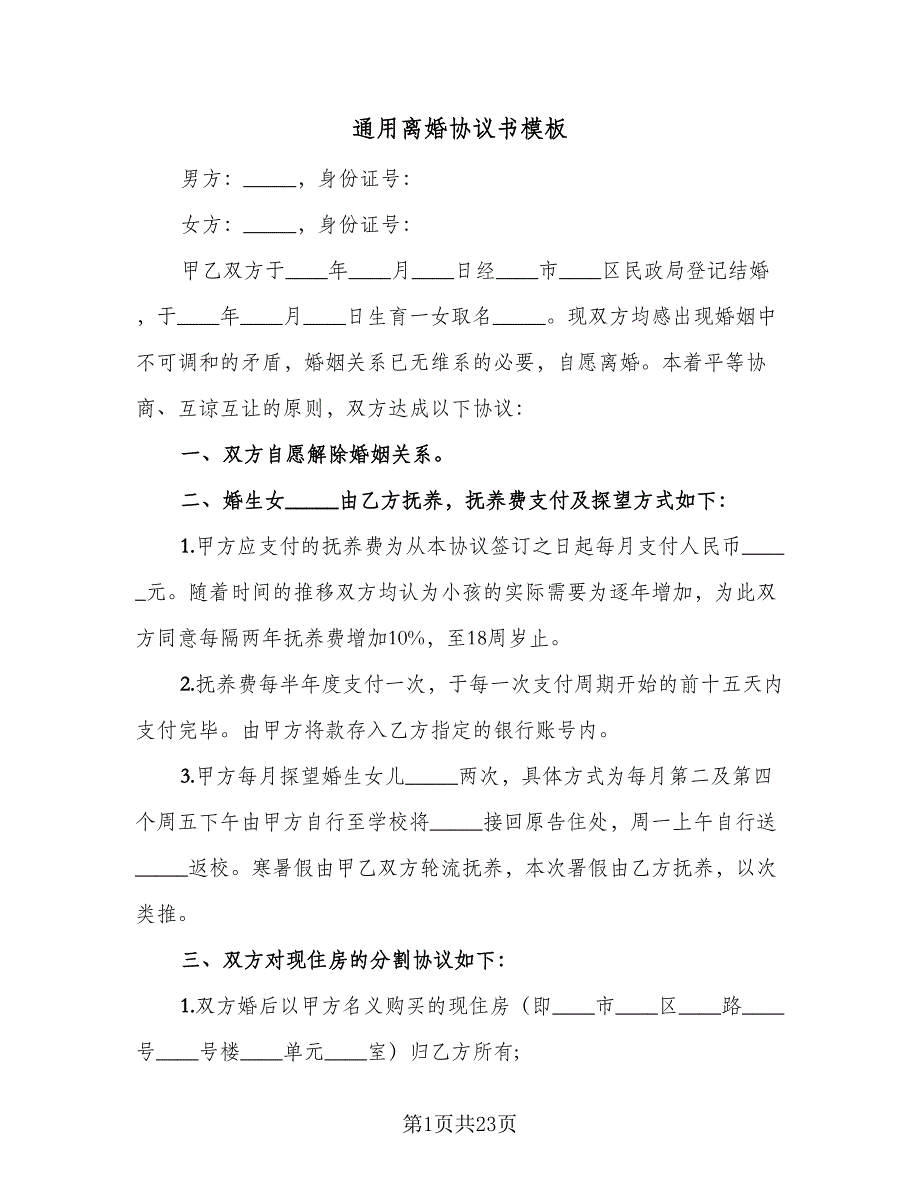 通用离婚协议书模板
男方：_____，身份证号：
女方：_____，身份证号：
甲乙双方于____年____月____日经____市____区民政局登记结婚
，于____年____月____日生育一女取名_____。现双方均感出现婚姻中
不可调和的矛盾，婚姻关系已无维系的必要，自愿离婚。本着平等协
商、互谅互让的原则，双方达成以下协议：
一、双方自愿解除婚姻关系。
二、婚生女_____由乙方抚养，抚养费支付及探望方式如下：
1.甲方应支付的抚养费为从本协议签订之日起每月支付人民币____
_元。随着时间的推移双方均认为小孩的实际需要为逐年增加，为此双
方同意每隔两年抚养费增加10%，至18周岁止。
2.抚养费每半年度支付一次，于每一次支付周期开始的前十五天内
支付完毕。由甲方将款存入乙方指定的银行账号内。
3.甲方每月探望婚生女儿_____两次，具体方式为每月第二及第四
个周五下午由甲方自行至学校将_____接回原告住处，周一上午自行送
_____返校。寒暑假由甲乙双方轮流抚养，本次署假由乙方抚养，以次
类推。
三、双方对现住房的分割协议如下：
1.双方婚后以甲方名义购买的现住房（即____市____区____路____
号____号楼____单元____室）归乙方所有;
第1页共23页